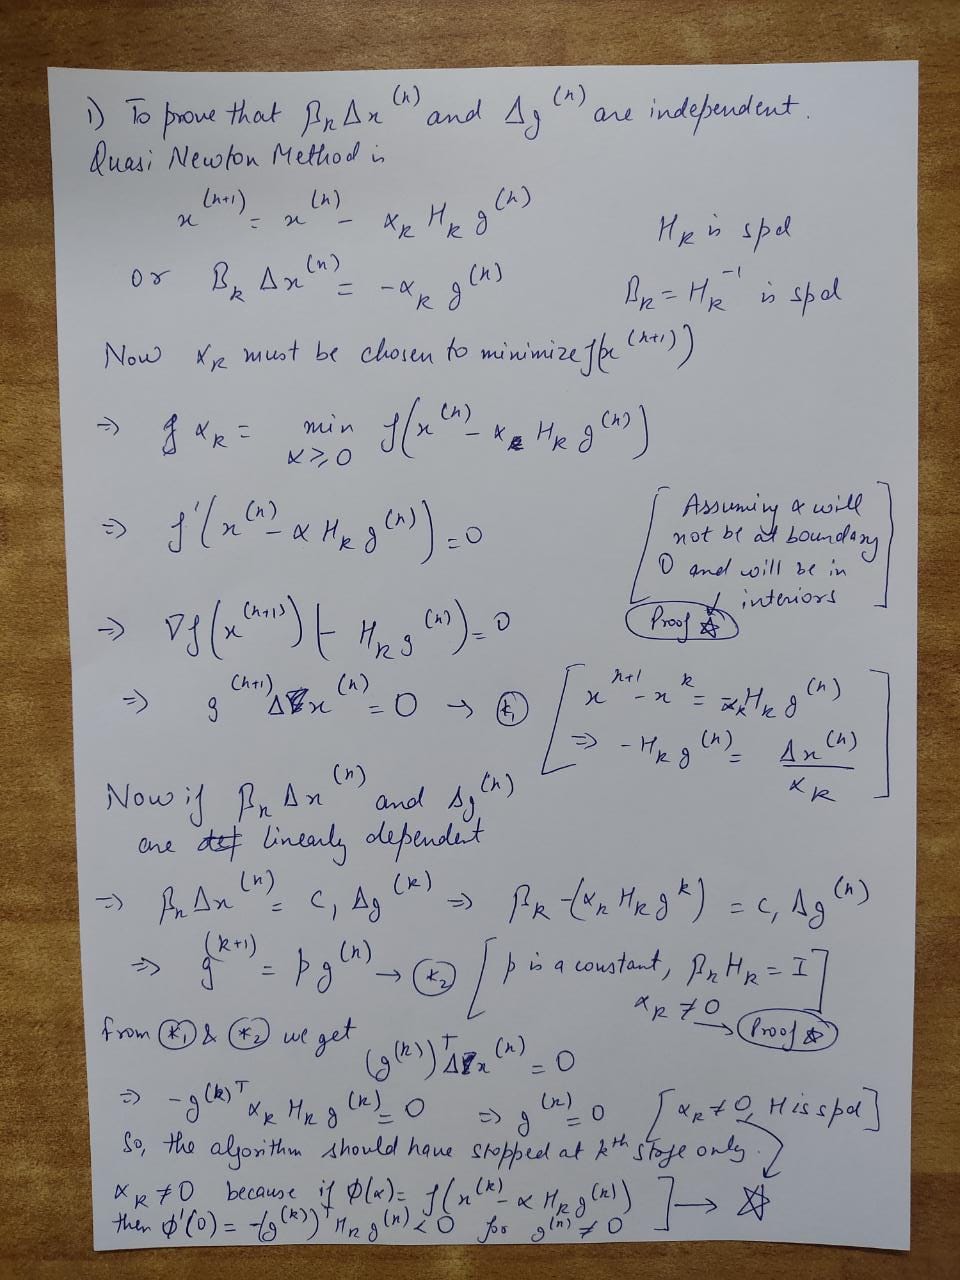 1) To prove that B_k Δx^(k) and Δg^(k) are independent.
Quasi Newton Method is
x^(k+1) = x^(k) - α_k H_k g^(k)
H_k is spd
or B_k Δx^(k) = -α_k g^(k)
B_k = H_k^-1 is spd
Now α_k must be chosen to minimize f(x^(k+1))
⇒ α_k = min_{α≥0} f(x^(k) - α H_k g^(k))
⇒ f'(x^(k) - α H_k g^(k)) = 0
[Assuming α will
not be at boundary
0 and will be in
interiors]
Proof ☆
⇒ ∇f(x^(k+1)) (- H_k g^(k)) = 0
⇒ g^(k+1) Δx^(k) = 0 → (*1)
[x^k+1 - x^k = -α_k H_k g^(k)
⇒ - H_k g^(k) = Δx^(k) / α_k]
Now if B_k Δx^(k) and Δg^(k)
are linearly dependent
⇒ B_k Δx^(k) = c, Δg^(k) ⇒ B_k -(α_k H_k g^k) = c, Δg^(k)
⇒ g^(k+1) = p g^(k) → (*2) [p is a constant, B_k H_k = I]
α_k ≠ 0 → Proof ☆
from (*1) & (*2) we get
(g^(k))^T Δx^(k) = 0
⇒ -g^(k)T α_k H_k g^(k) = 0 ⇒ g^(k) = 0 [α_k ≠ 0, H is spd]
So, the algorithm should have stopped at k^th stage only.
α_k ≠ 0 because if φ(α) = f(x^(k) - α H_k g^(k))
then φ'(0) = -(g^(k))^T H_k g^(k) < 0 for g^(k) ≠ 0 ] → ☆